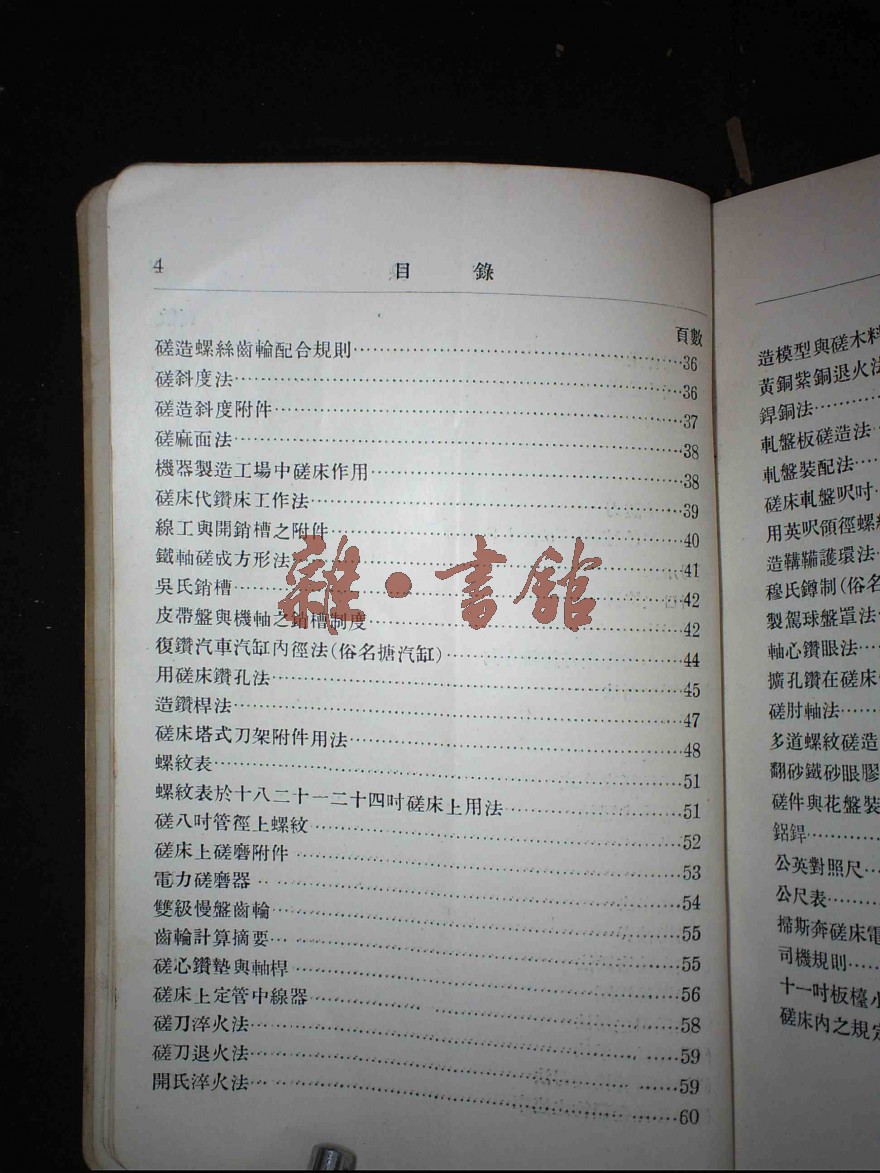 4
目 錄
頁數
磋造螺絲齒輪配合規則 36
磋斜度法 36
磋造斜度附件 37
磋麻面法 38
機器製造工場中磋床作用 38
磋床代鑽床工作法 39
線工與開銷槽之附件 40
鐵軸磋成方形法 41
吳氏銷槽 42
皮帶盤與機軸之銷槽制度 42
復鑽汽車汽缸內徑法(俗名搪汽缸) 44
用磋床鑽孔法 45
造鑽桿法 47
磋床塔式刀架附件用法 48
螺紋表 51
螺紋表於十八二十一二十四吋磋床上用法 51
磋八吋管徑上螺紋 52
磋床上磋磨附件 53
電力磋磨器 54
雙級慢盤齒輪 55
齒輪計算摘要 55
磋心鑽墊與軸桿 56
磋床上定管中線器 58
磋刀淬火法 59
磋刀退火法 59
開氏淬火法 60
雜·書館
造模型與磋木料
黃銅紫銅退火法
銲銅法
軋盤板磋造法
軋盤裝配法
磋床軋盤呎吋
用英呎領徑螺紋
造鞲鞴護環法
穆氏鐏制(俗名
製駕球盤罩法
軸心鑽眼法
擴孔鑽在磋床
磋肘軸法
多道螺紋磋造
翻砂鐵砂眼膠
磋件與花盤裝
鋁銲
公英對照尺
公尺表
掃斯奔磋床電
司機規則
十一吋板檯小
磋床內之規定